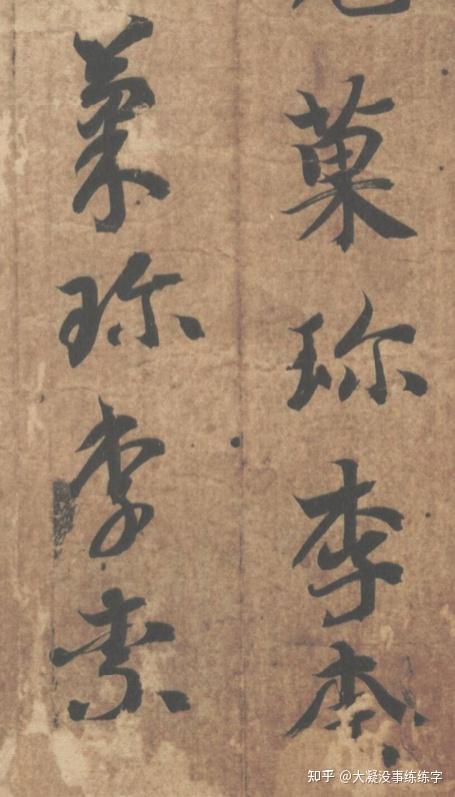 菓珍李柰
菓珍李柰
知乎 @大凝没事练练字